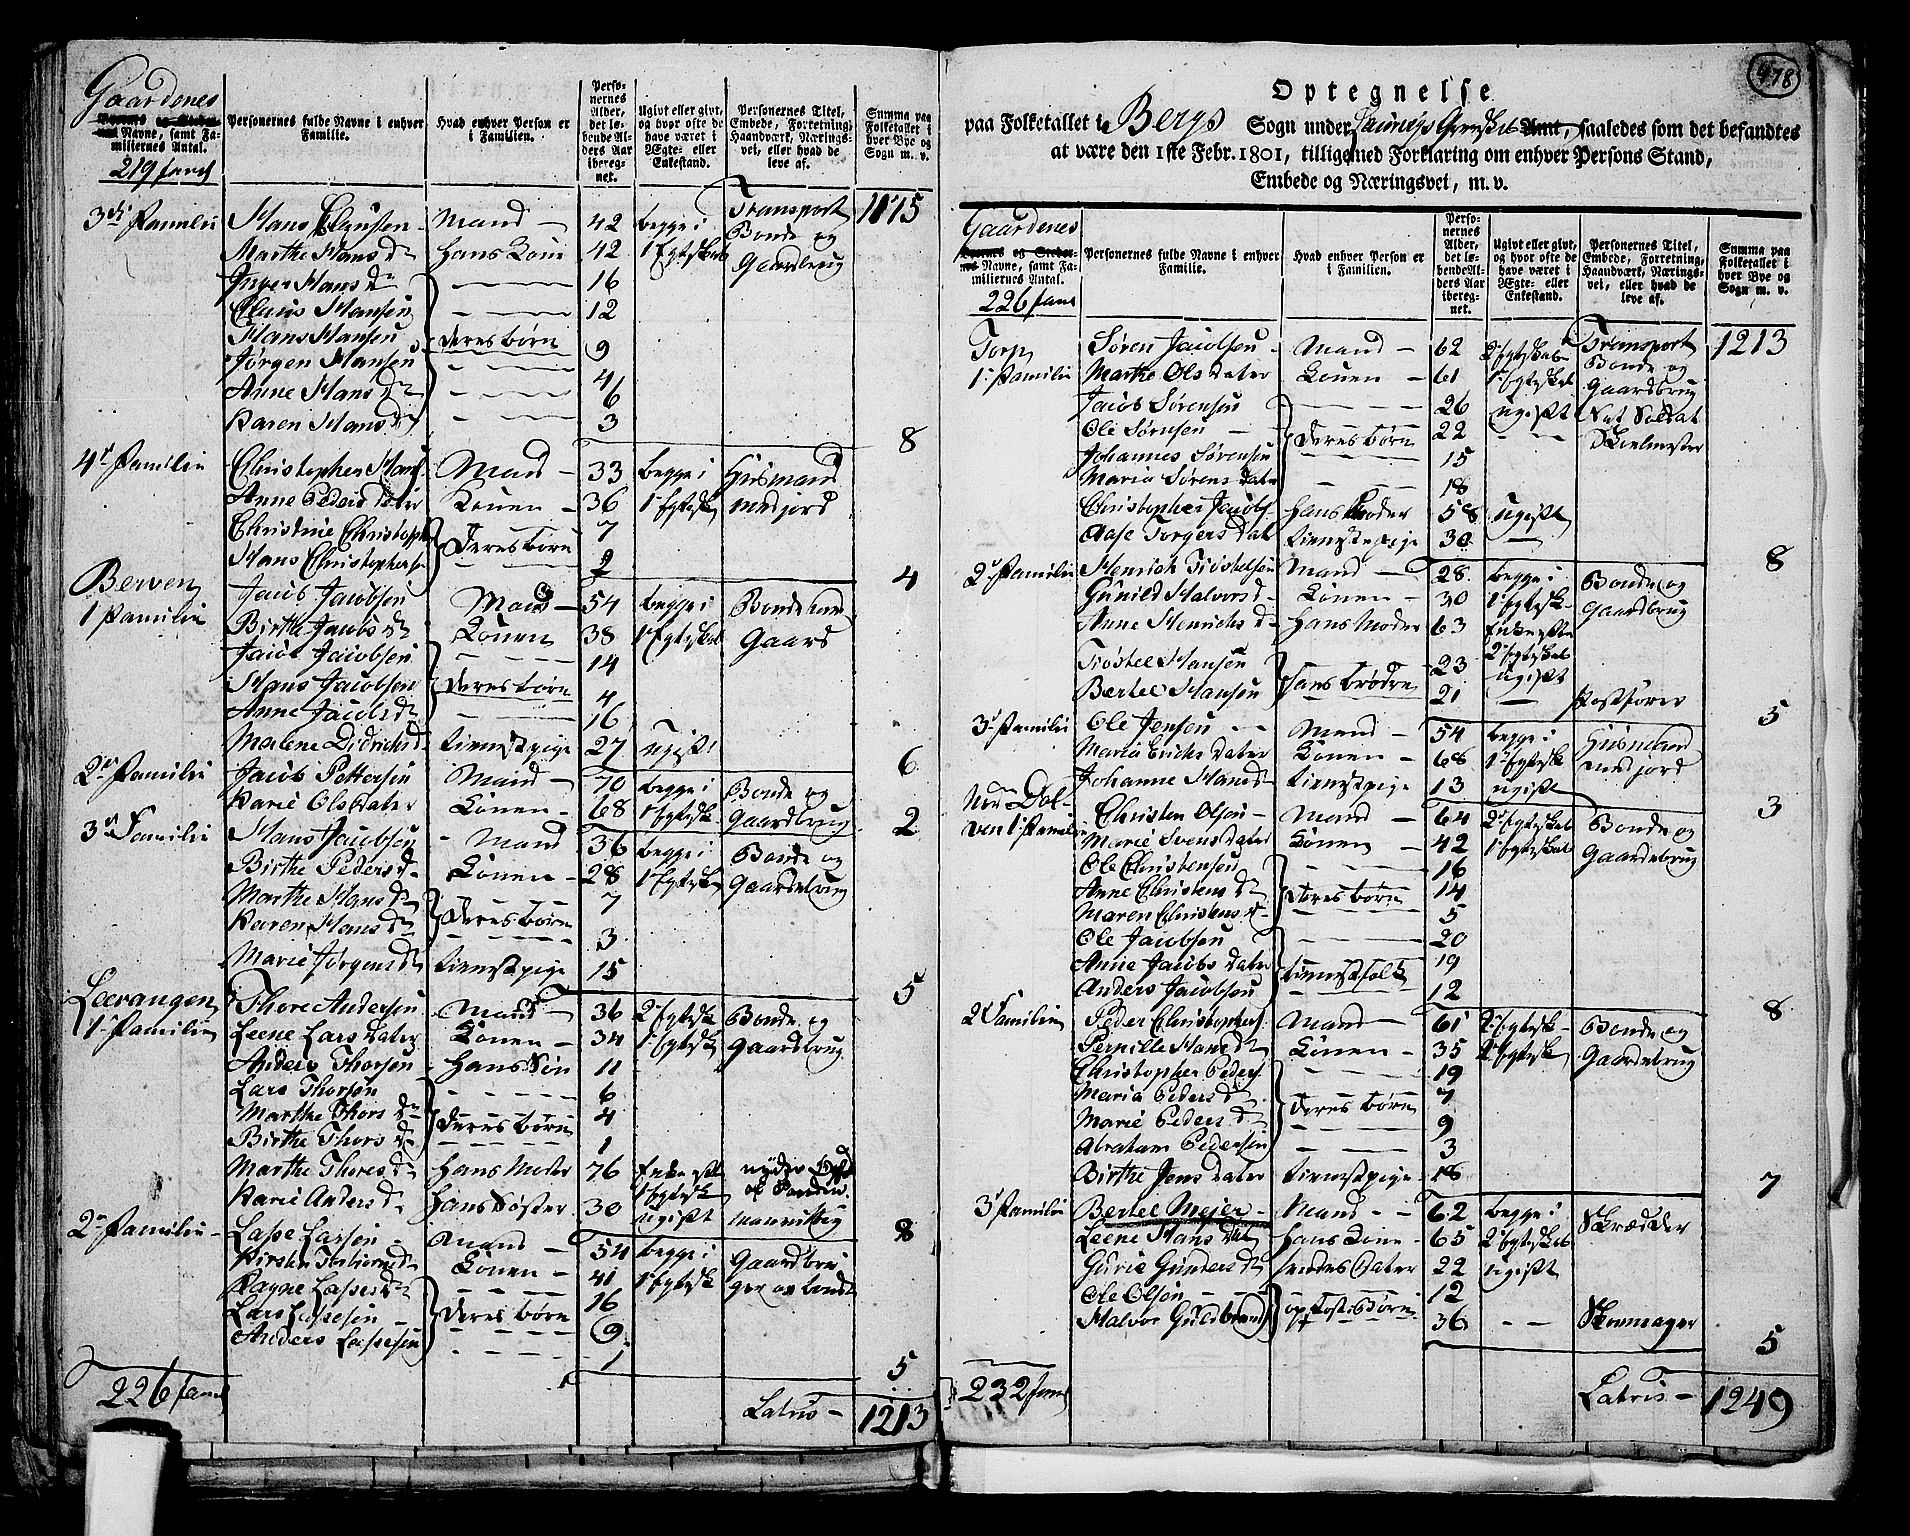 Gaardenes
Byernes og Stedernes Navne, samt Familiernes Antal.
219 famil
Personernes fulde Navne i enhver Familie.
Hvad enhver Person er i Familien.
Personernes Alder, det løbende Alders Aar iberegnet.
Ugivt eller givt, og hvor ofte de have været i Ægte- eller Enkestand.
Personernes Titel, Embede, Forretning, Haandværk, Næringsvei, eller hvad de leve af.
Summa paa Folketallet i hver Bye og Sogn m. v.
Transport 1175
3die Familie Hans Clausen Mand 42 begge i Bonde og
Marthe Hans Dr hans Kone 42 1 Egteskab Gaardbrug
Inger Hans Dr 16
Claus Hansen 12
Hans Hansen deres børn 9
Jørgen Hansen 4
Anne Hans Dr 6
Karen Hans Dr 3
8
4de Familie Christopher Hans. Mand 33 begge i Huusmand
Anne Peders Dater Konen 36 1 Egtesk med jord
Christine Christoph 7
Hans Christophersen deres børn 2
4
Berven
1 Familie Jacob Jacobsen Mand 54 begge i Bonde
Birthe Jacobs Dr Konen 38 1 Egteskab Gaard
Jacob Jacobsen 14
Hans Jacobsen deres børn 4
Anne Jacobs Dr 16
Malene Didrichs Dr tienestpige 27 ugift
6
2den Familie Jacob Pettersen Mand 70 begge i Bonde og
Karie Ols Dater Konen 68 1 Egtesk. Gaardbrug
2
3die Familie Hans Jacobsen Mand 36 begge i Bonde og
Birthe Peders Dr Konen 28 1 Egtesk Gaardebrug
Marthe Hans Dr 7
Karen Hans Dr deres børn 3
Marie Jørgens Dr tienestpige 15
5
Leerangen
1te Familie Thore Andersen Mand 36 2 Egtesk Bonde og
Leene Lars Dater Konen 34 1 Egtesk Gaardbrug
Anders Thorsen hans Søn 11
Lars Thorsen 6
Marthe Thors Dr deres børn 4
Birthe Thors Dr 1
Marthe Thores Dr hans Moder 76 Enke eft. 1 Egtesk nyder
Karie Anders Dr hans Søster 30 ugift
8
2den Familie Lasse Larsen Mand 54 begge i Gaardbru
Kirsten Torbiørns Dr Konen 41 1 Egtesk ger og bonde
Ragne Lasses Dr 16
Lars Lassesen deres børn 9
Anders Lassesen 1
5
226 famil Latus 1213
478
Optegnelse
paa Folketallet i Bergs Sogn under Laurvigs Grevskab Amt, saaledes som det befandtes
at være den 1ste Febr. 1801, tilligemed Forklaring om enhver Persons Stand,
Embede og Næringsvei, m. v.
Gaardenes
Byernes og Stedernes Navne, samt Familiernes Antal.
226 famil
Personernes fulde Navne i enhver Familie.
Hvad enhver Person er i Familien.
Personernes Alder, det løbende Alders Aar iberegnet.
Ugivt eller givt, og hvor ofte de have været i Ægte- eller Enkestand.
Personernes Titel, Embede, Forretning, Haandværk, Næringsvei, eller hvad de leve af.
Summa paa Folketallet i hver Bye og Sogn m. v.
Transport 1213
Torp Søren Jacobsen Mand 62 2 Egteskab Bonde og
1te Familie Marthe Ols Dater Konen 61 1 Egteskab Gaardbrug
Jacob Sørensen 26 ugift Nat Soldat
Ole Sørnsen deres børn 22
Johannes Sørensen 15
Maria Sørens Dater 18
Christopher Jacobs. hans Broder 58 ugift
Aase Torgers Dat tienestepige 30
8
2den Familie Henrich Trostelsen Mand 28 begge i Bonde og
Gunild Halvors Dr Konen 30 1 Egtesk. Gaardbrug
Anne Henrichs Dr hans Moder 63 Enke efter 2 Egteskab
Trostel Hansen hans brødre 23 ugift
Bertel Hansen 21 Postfører
5
3die Familie Ole Jensen Mand 54 begge i Huusmand
Maria Erichs Dater Konen 68 1 Egtesk med jord
Johanne Hans Dr tienestpige 13 ugift
3
Nor Dolven 1te Familie Christen Olsen Mand 64 2 Egteskab Bonde og
Marie Svens Dater Konen 42 1 Egteskab Gaardebrug
Ole Christensen 16
Anne Christens Dr deres børn 14
Maren Christens Dr 5
Ole Jacobsen 20
Anne Jacobs Dater tienestfolk 19
Anders Jacobsen 12
8
2den Familie Peder Christophers. Mand 61 2 Egtesk. Bonde og
Pernille Hans Dr Konen 35 Egtesk Gaardebrug
Christopher Peders. 19
Maria Peders Dr deres børn 7
Marie Peders Dr 9
Abraham Pedersen 3
Birthe Jens Dater tienestpige 18
7
3die Familie Bertel Mejer Mand 62 begge i Skrædder
Leene Hans Dat hans Kone 65 2 Egteskab
Gurie Gunders Dr hendes Dater 22 ugift
Ole Olsen 12
Halvor Guldbrand opfostr. Børn 36 Skoemager
5
232 famil Latus 1249